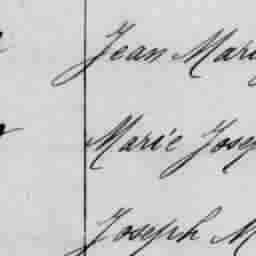 Jean Mari
Marie Josep
Joseph M